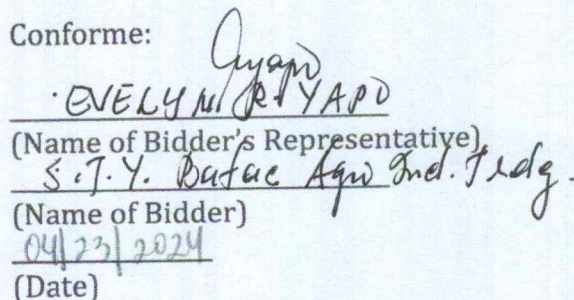 Conforme:
EVELYN R. YAPO
(Name of Bidder's Representative)
S.J.Y. Batac Agro Ind. Trdg.
(Name of Bidder)
04/23/2024
(Date)